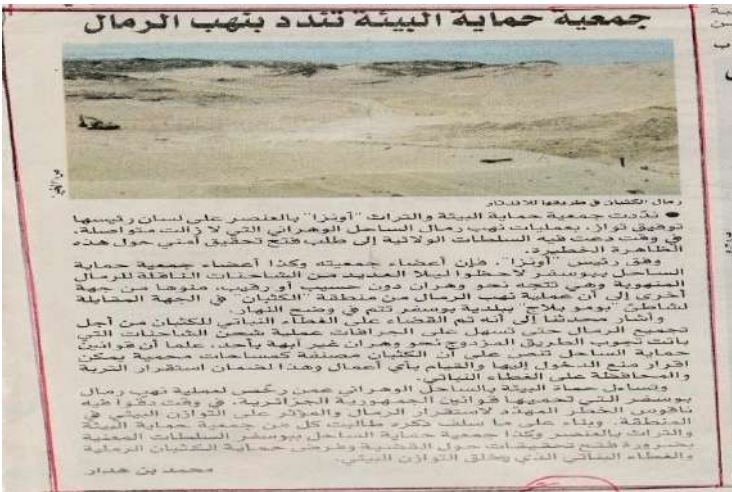 جمعية حماية البيئة تندد بنهب الرمال
رمال الكثبان في طريقها للاندثار
● نددت جمعية حماية البيئة والتراث "أونزا" بالعنصر على لسان رئيسها
توفيق نواز، بعمليات نهب رمال الساحل الوهراني التي لا زالت متواصلة،
في وقت دعت فيه السلطات الولائية إلى طلب فتح تحقيق أمني حول هذه
الظاهرة الخطيرة.
وفق رئيس "أونزا"، فإن أعضاء جمعيته وكذا أعضاء جمعية حماية
الساحل ببوسفر لاحظوا ليلا العديد من الشاحنات الناقلة للرمال
المنهوبة وهي تتجه نحو وهران دون حسيب أو رقيب، منوها من جهة
أخرى إلى أن عملية نهب الرمال من منطقة "الكثبان" في الجهة المقابلة
لشاطئ "بومو بلاج" ببلدية بوسفر تتم في وضح النهار.
وأشار محدثنا إلى أنه تم القضاء على الغطاء النباتي للكثبان من أجل
تجميع الرمال حتى تسهل على الجرافات عملية شحن الشاحنات التي
باتت تجوب الطريق المزدوج نحو وهران غير آبهة بأحد، علما أن قوانين
حماية الساحل تنص على أن الكثبان مصنفة كمساحات محمية يمكن
إقرار منع الدخول إليها والقيام بأي أعمال وهذا لضمان استقرار التربة
والمحافظة على الغطاء النباتي.
وتساءل حماة البيئة بالساحل الوهراني عمن رخّص لعملية نهب رمال
بوسفر التي تحميها قوانين الجمهورية الجزائرية، في وقت دقوا فيه
ناقوس الخطر المهدد لاستقرار الرمال والمؤثر على التوازن البيئي في
المنطقة. وبناء على ما سلف ذكره طالبت كل من جمعية حماية البيئة
والتراث بالعنصر وكذا جمعية حماية الساحل ببوسفر السلطات المعنية
بضرورة فتح تحقيقات حول القضية وفرض حماية الكثبان الرملية
والغطاء النباتي الذي يخلق التوازن البيئي.
محمد بن هدار